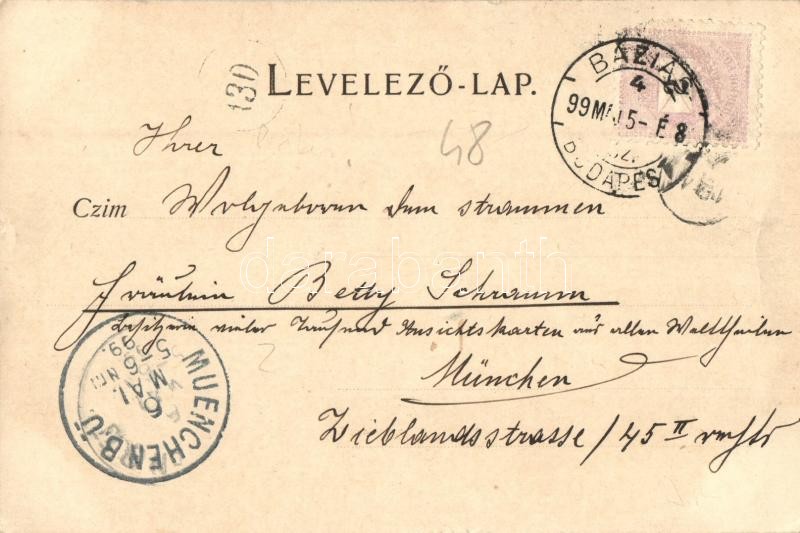 LEVELEZŐ-LAP.
130
BÁZIÁS
4
99 MÁJ 5 - É 8
BUDAPEST
48
Ihrer
Czim Wolgeboren dem strammen
Fräulein Betty Schramm
besitzerin vieler Tausend Ansichtskarten aus allen Welttheilen
München
Zieblandsstrasse / 45 II rechts
MUENCHEN B.Ü.
6 MAI
99
darabanth